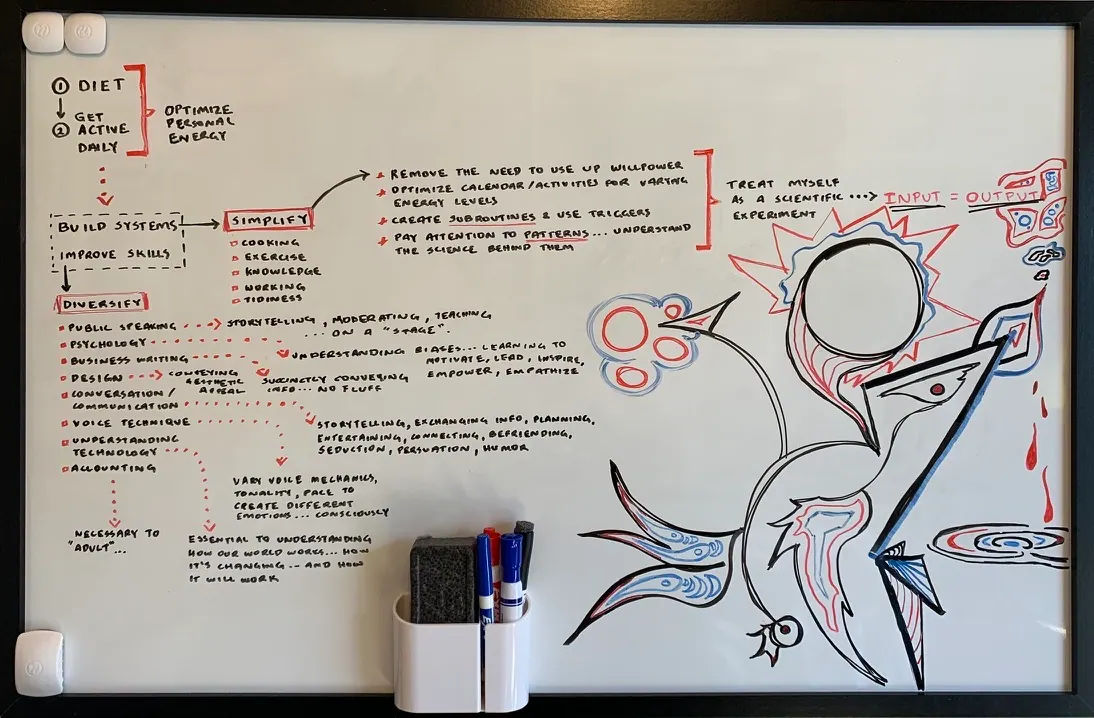 ① DIET
② GET
ACTIVE
DAILY
OPTIMIZE
PERSONAL
ENERGY
BUILD SYSTEMS
IMPROVE SKILLS
SIMPLIFY
COOKING
EXERCISE
KNOWLEDGE
WORKING
TIDINESS
REMOVE THE NEED TO USE UP WILLPOWER
OPTIMIZE CALENDAR/ACTIVITIES FOR VARYING
ENERGY LEVELS
CREATE SUBROUTINES & USE TRIGGERS
PAY ATTENTION TO PATTERNS... UNDERSTAND
THE SCIENCE BEHIND THEM
TREAT MYSELF
AS A SCIENTIFIC
EXPERIMENT
INPUT = OUTPUT
DIVERSIFY
PUBLIC SPEAKING
STORYTELLING, MODERATING, TEACHING
... ON A "STAGE".
PSYCHOLOGY
UNDERSTANDING BIASES... LEARNING TO
MOTIVATE, LEAD, INSPIRE,
EMPOWER, EMPATHIZE
BUSINESS WRITING
SUCCINCTLY CONVEYING
INFO... NO FLUFF
DESIGN
CONVEYING
AESTHETIC
APPEAL
CONVERSATION/
COMMUNICATION
STORYTELLING, EXCHANGING INFO, PLANNING,
ENTERTAINING, CONNECTING, BEFRIENDING,
SEDUCTION, PERSUATION, HUMOR
VOICE TECHNIQUE
VARY VOICE MECHANICS,
TONALITY, PACE TO
CREATE DIFFERENT
EMOTIONS... CONSCIOUSLY
UNDERSTANDING
TECHNOLOGY
ESSENTIAL TO UNDERSTANDING
HOW OUR WORLD WORKS... HOW
IT'S CHANGING... AND HOW
IT WILL WORK
ACCOUNTING
NECESSARY TO
"ADULT"...